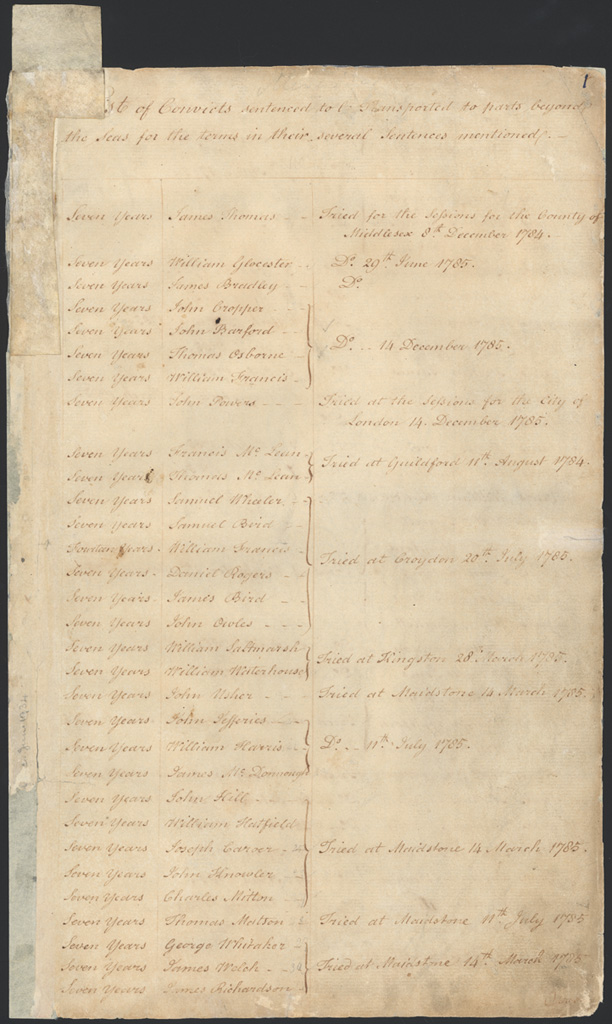 1
st of Convicts sentenced to be Transported to parts beyond
the Seas for the terms in their several Sentences mentioned.
Seven Years James Thomas Tried for the Sessions for the County of
Middlesex 8th December 1784.
Seven Years William Glocester Do. 29th June 1785.
Seven Years James Bradley Do.
Seven Years John Cropper
Seven Years John Barford
Seven Years Thomas Osborne Do. 14 December 1785.
Seven Years William Francis
Seven Years John Powers Tried at the Sessions for the City of
London 14. December 1785.
Seven Years Francis Mc Lean Tried at Guildford 11th August 1784.
Seven Years Thomas Mc Lean
Seven Years Samuel Wheeler
Seven Years Samuel Bird
Fourteen Years William Francis Tried at Croydon 20th July 1785.
Seven Years Daniel Rogers
Seven Years James Bird
Seven Years John Owles
Seven Years William Saltmarsh Tried at Kingston 28th March 1785.
Seven Years William Waterhouse
Seven Years John Usher Tried at Maidstone 14 March 1785.
Seven Years John Jefferies
Seven Years William Harris Do. 11th July 1785.
Seven Years James Mc Donnough
Seven Years John Hill
Seven Years William Hatfield
Seven Years Joseph Carver Tried at Maidstone 14 March 1785.
Seven Years John Knowler
Seven Years Charles Milton
Seven Years Thomas Matson Tried at Maidstone 11th July 1785
Seven Years George Whitaker
Seven Years James Welch Tried at Maidstone 14th March 1785
Seven Years James Richardson